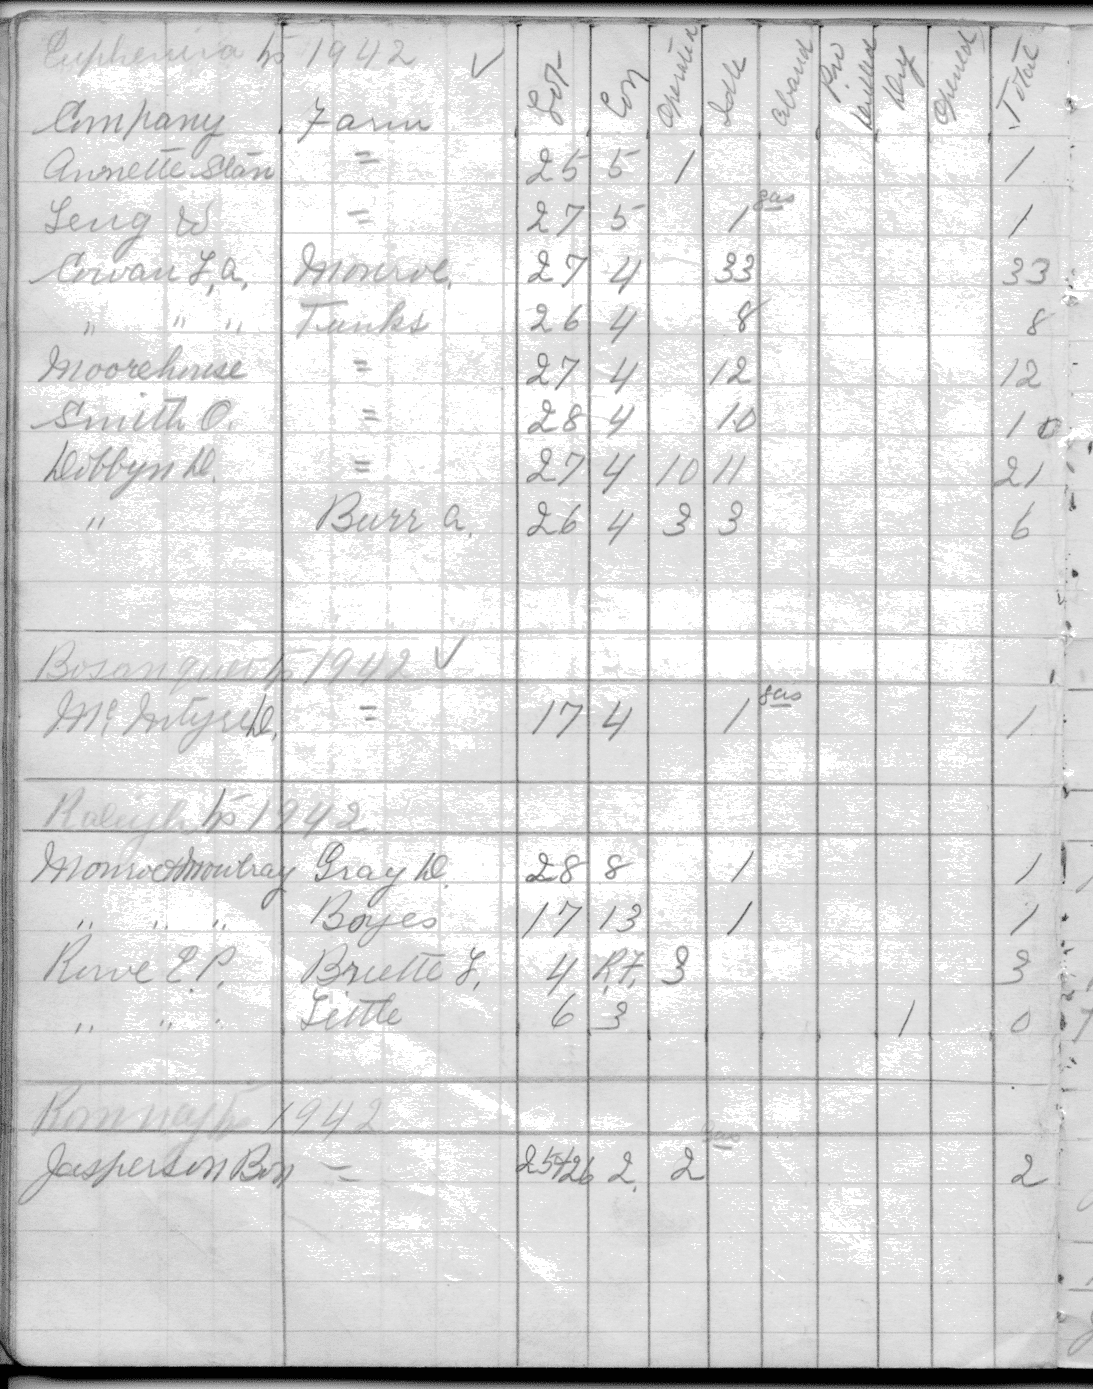 Euphemia Tp 1942 ✓
Company Farm Lot Con Operated Idle Aband Pro Drilled Dry Opened Total
Annette Stan = 25 5 1 1
Leng W = 27 5 1 gas 1
Cowan F.A. Monroe. 27 4 33 33
" " " Funks 26 4 8 8
Moorehouse = 27 4 12 12
Smith O. = 28 4 10 10
Dobbyn D. = 27 4 10 11 21
" Burr A. 26 4 3 3 6
Bosanquet Tp 1942 ✓
McIntyre D. = 17 4 1 gas 1
Raleigh Tp 1942
Monroe & Moubray Gray D. 28 8 1 1
" " " Boyes 17 13 1 1
Rowe E.P. Bruette F. 4 R.F. 3 3
" " " Little 6 3 1 0
Romney Tp 1942
Jasperson Bon = 25+26 2. 2 gas 2